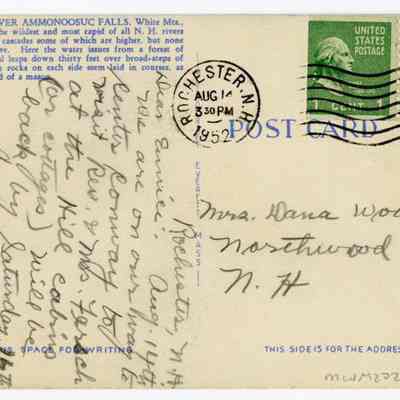 VER AMMONOOSUC FALLS, White Mts.,
he wildest and most rapid of all N. H. rivers
cascades some of which are higher, but none
ve. Here the water issues from a forest of
d leaps down thirty feet over broad-steps of
rocks on each side seem laid in courses, as
d of a mason
UNITED
STATES
POSTAGE
1 CENT 1
ROCHESTER, N.H.
AUG 14
3 30 PM
1952
POST CARD
Rochester, N.H.
Aug. 14th
Dear Eunice:
We are on our way to
Center Conway to
visit Rev. & Mrs.
at the Hill cabins
(or cottages) Will be
back by Saturday 16th
Mrs. Dana Woo
Northwood
N. H
SPACE FOR WRITING
THIS SIDE IS FOR THE ADDRES